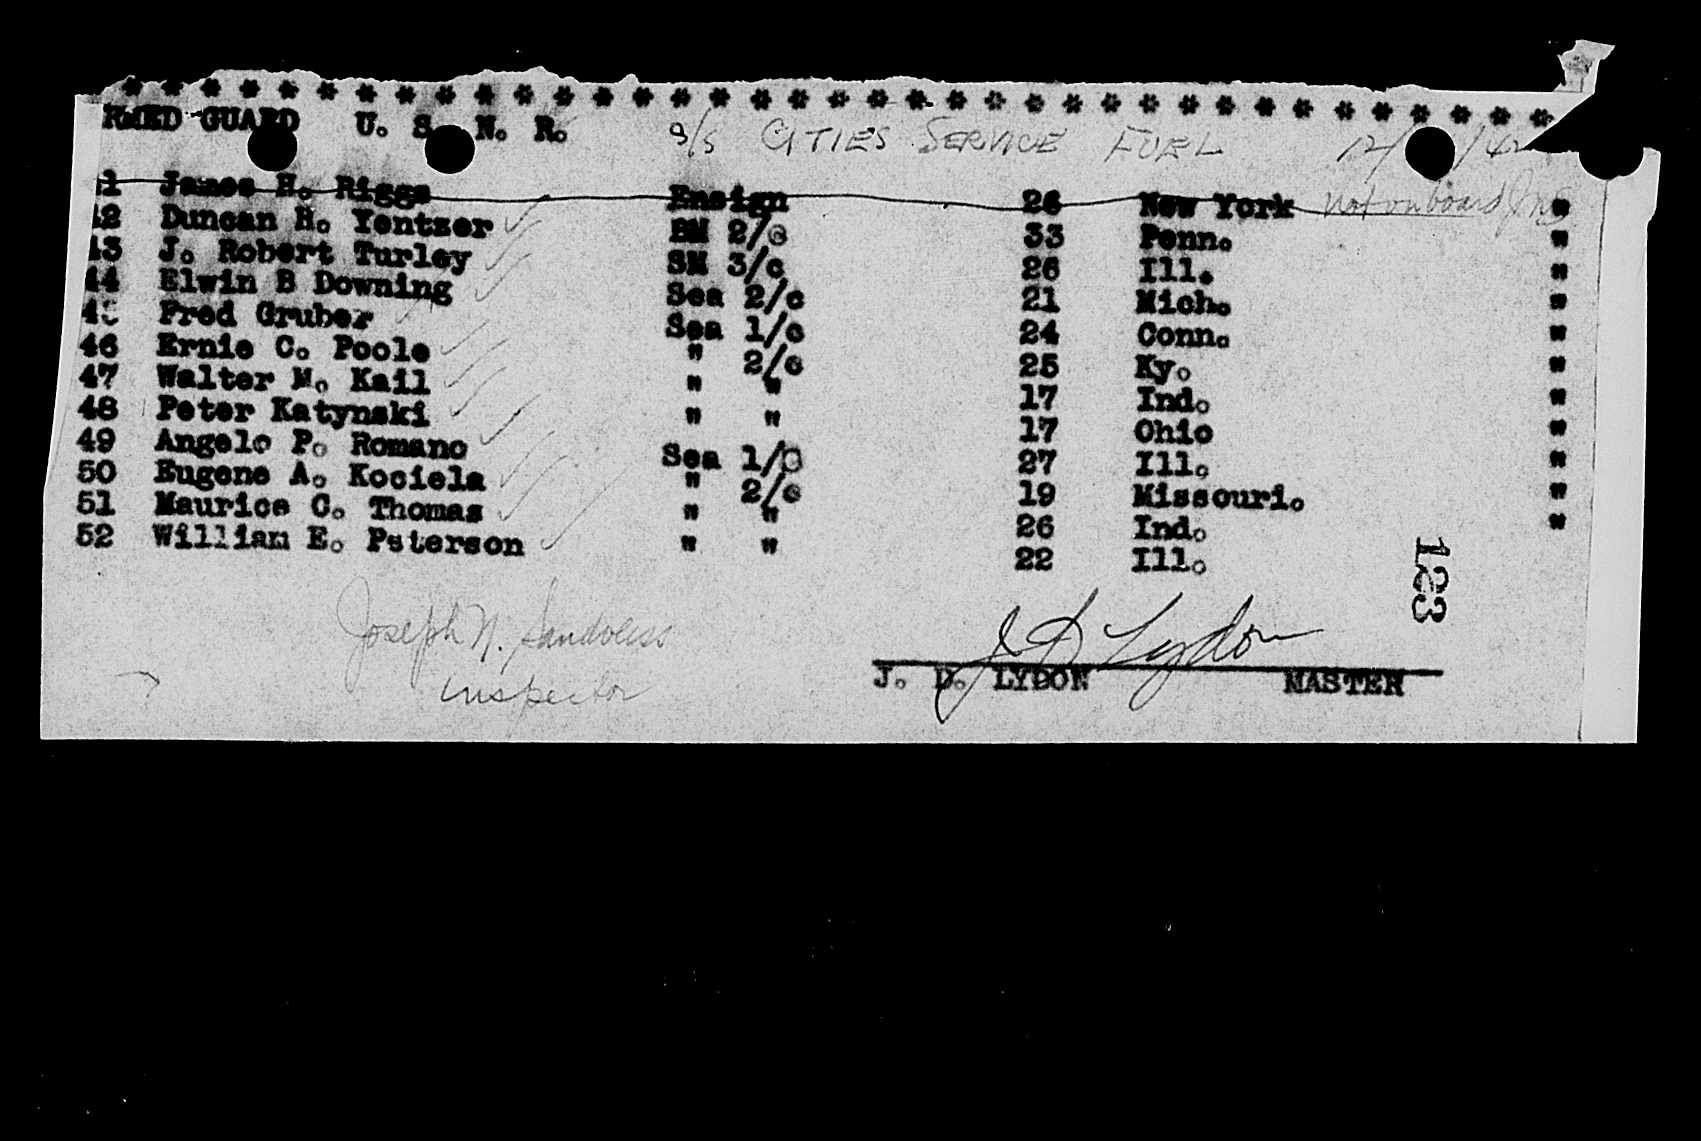 * * * * * * * * * * * * * * * * * * * * * * * * * * * * * * * * * * * * *
RMED GUARD U. S. N. R. S/S CITIES SERVICE FUEL 12/ /42
1 James H. Riggs Ensign 26 New York not on board "
42 Duncan H. Yentzer BM 2/c 33 Penn. "
43 J. Robert Turley SM 3/c 26 Ill. "
44 Elwin B Downing Sea 2/c 21 Mich. "
45 Fred Gruber Sea 1/c 24 Conn. "
46 Ernie C. Poole " 2/c 25 Ky. "
47 Walter M. Kail " " 17 Ind. "
48 Peter Katynski " " 17 Ohio "
49 Angelo P. Romano Sea 1/c 27 Ill. "
50 Eugene A. Kociela " 2/c 19 Missouri. "
51 Maurice C. Thomas " " 26 Ind. "
52 William E. Peterson " " 22 Ill.
123
Joseph N.
J D Lydon
Inspector
J. D. LYDON MASTER